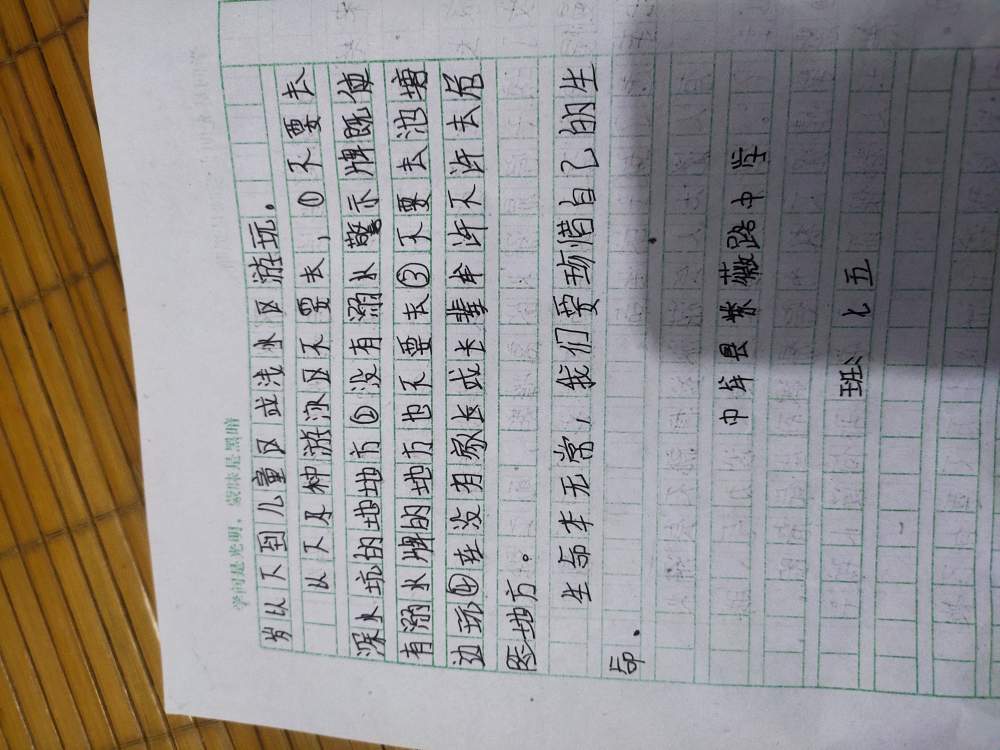 学问是光明，蒙昧是黑暗
岁以下到儿童区或浅水区游玩。
以下几种游泳区不要去，①不要去
深水坑的地地方②没有溺水警示牌既使
有溺水牌的地方也不要去③不要去池塘
边玩④在没有家长或长辈年许不许去危
险地方。
生命本无常，我们要珍惜自己的生
命。
中牟县紫薇路中学
班：七五